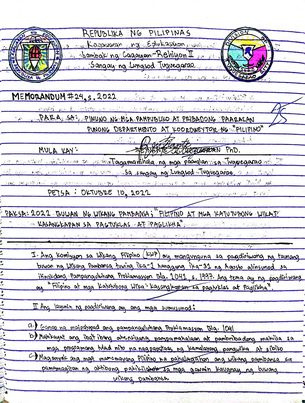 REPUBLIKA NG PILIPINAS
Kagawaran ng Edukasyon
Lambak ng Cagayan - Rehiyon II
Sangay ng Lungsod Tuguegarao
MEMORANDUM #24, s. 2022
PARA SA: PINUNO NG MGA PAMPUBLIKO AT PRIBADONG PAARALAN
PUNONG DEPARTMENTO AT KOORDNEYTOR NG "PILIPINO"
MULA KAY: PhD.
Tagapamahala ng mga paaralan sa Tuguegarao
Sa sangay ng Lungsod-Tuguegarao
PETSA: OKTUBRE 10, 2022
PAKSA: 2022 BUWAN NG WIKANG PAMBANSA: FILIPINO AT MGA KATUTUBONG WIKA:
KASANGKAPAN SA PAGTUKLAS AT PAGLIKHA".
I. Ang Komisyon sa Wikang Filipino (KWF) ay mangunguna sa pagdiriwang ng taunang
buwan ng Wikang Pambansa tuwing ika-1 hanggang ika-31 ng Agosto alinsunod sa
Pampanguluhang Proklamasyon Blg. 1041, s. 1997. Ang tema ay ng pagdiriwang
ay "Filipino at mga Katutubong Wika: Kasangkapan sa pagtuklas at paglikha".
II Ang layunin ng pagdiriwang ay ang mga sumusunod:
a) ganap na maipatupad ang pampanguluhang Proklamasyon Blg. 1041
b) Mahikayat ang iba't ibang ahensiyang pampamahalaan at pambribadong makiisa sa
mga programang bilang nito na nagpapataas ng kamalayang pangwika at sibiko
c) Maganyak ang mga mamamayang Pilipino na pahalagahan ang wikang pambansa sa
pamamagitan ng aktibong pakikilahok sa mga gawain kaugnay ng buwan
wikang pambansa.